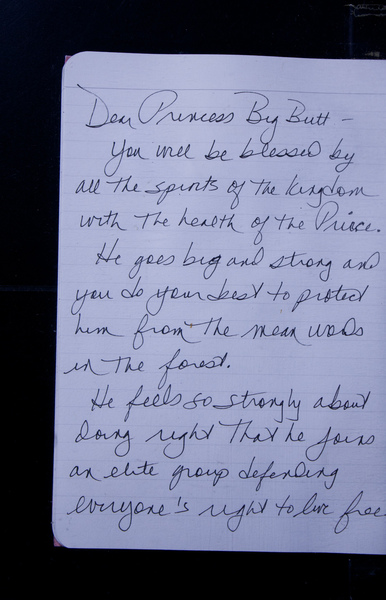 Dear Princess Big Butt –
You will be blessed by
all the spirits of the kingdom
with the health of the Prince.
He goes big and strong and
you do your best to protect
him from the mean words
in the forest.
He feels so strongly about
doing right that he joins
an elite group defending
everyone's right to live free